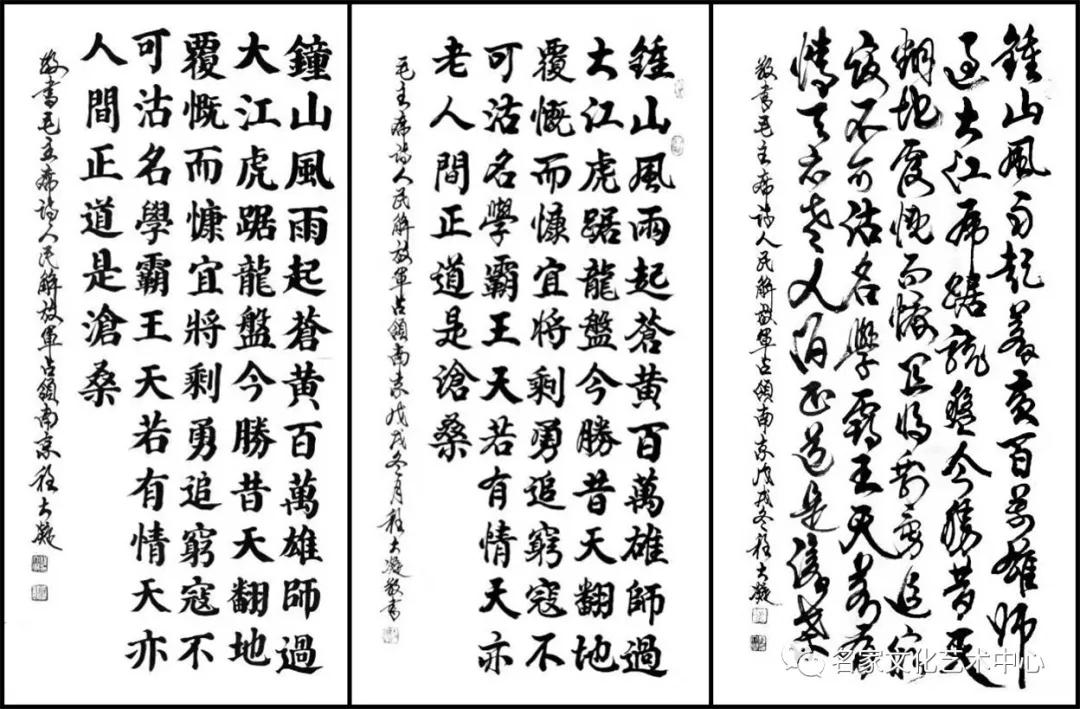 鐘山風雨起蒼黄百萬雄師過
大江虎踞龍盤今勝昔天翻地
覆慨而慷宜將剩勇追窮寇不
可沽名學霸王天若有情天亦
人間正道是滄桑
敬書毛主席詩人民解放軍占領南京程大凝
鍾山風雨起蒼黄百萬雄師過
大江虎踞龍盤今勝昔天翻地
覆慨而慷宜將剩勇追窮寇不
可沽名學霸王天若有情天亦
老人間正道是滄桑
毛主席詩人民解放軍占領南京戊戌冬月程大凝敬書
鍾山風雨起蒼黄百萬雄師
過大江虎踞龍盤今勝昔天
翻地覆慨而慷宜將剩勇追窮
寇不可沽名學霸王天若有
情天亦老人間正道是滄桑
敬書毛主席詩人民解放軍占領南京戊戌冬程大凝
名家文化艺术中心